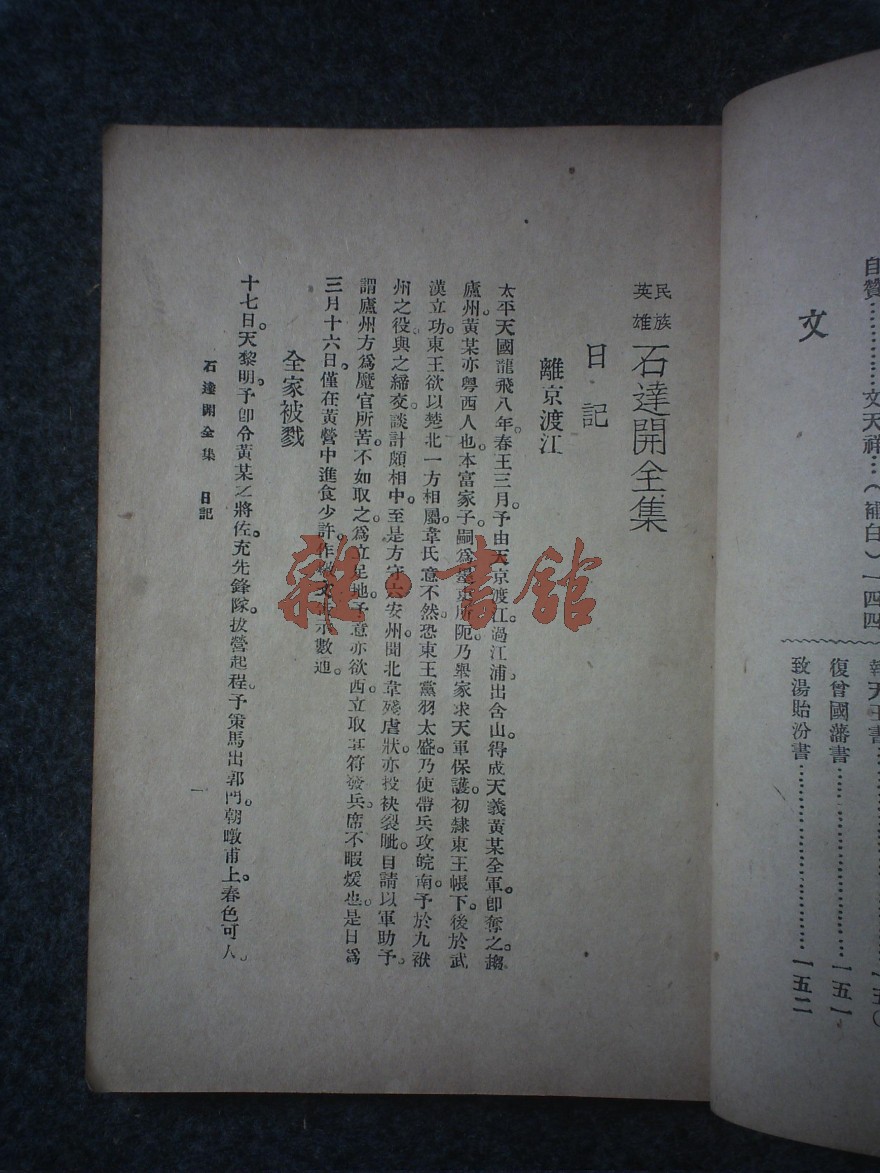 自贊……………文天祥…(補白)一四四
文
報天王書……………………………一五〇
復曾國藩書……………………………一五一
致湯貽汾書……………………………一五二
民族英雄 石達開全集
日記
離京渡江
太平天國龍飛八年。春王三月。予由天京渡江。過江浦。出含山。得成天義黃某全軍。卽奪之趨
廬州。黃某亦粵西人也。本富家子。嗣爲墨吏所阨。乃舉家求天軍保護。初隸東王帳下。後於武
漢立功。東王欲以楚北一方相屬。韋氏意不然。恐東王黨羽太盛。乃使帶兵攻皖南。予於九袱
州之役。與之締交。談計頗相中。至是方守六安州。聞北韋殘虐狀。亦投袂裂眦。自請以軍助予。
謂廬州方爲魔官所苦。不如取之。爲立足地。予意亦欲西。立取兵符發兵。席不暇煖也。是日爲
三月十六日。僅在黃營中進食少許。作檄文告示數通。
全家被戮
十七日。天黎明。予卽令黃某之將佐。充先鋒隊。拔營起程。予策馬出郭門。朝暾甫上。春色可人。
石達開全集 日記
一
雜·書館